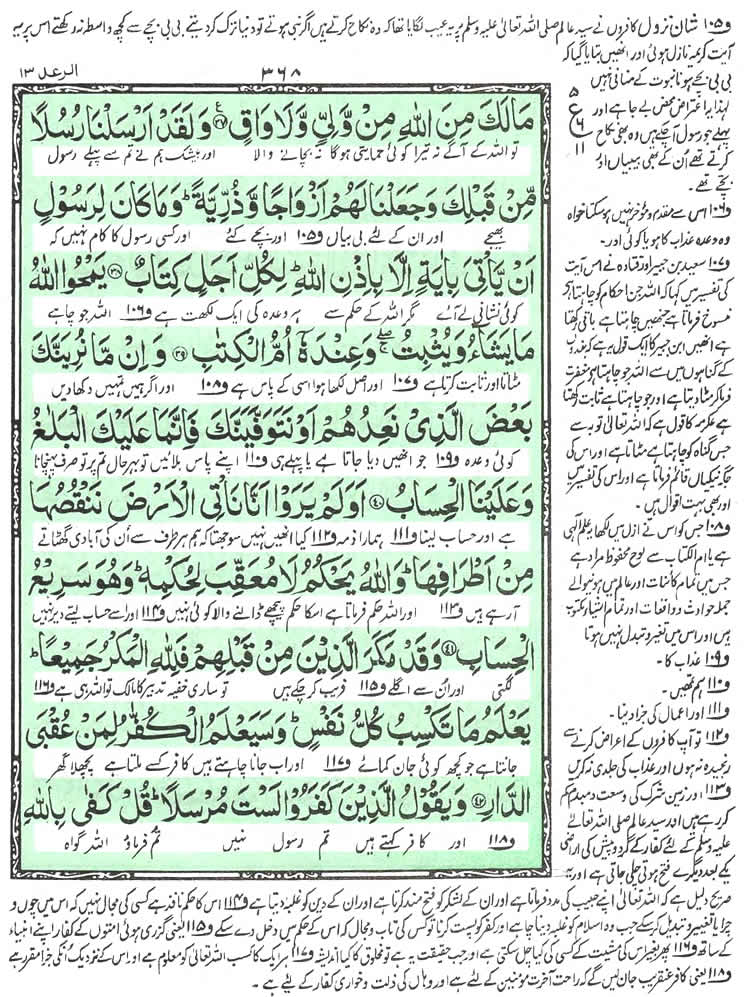 و۱۰۵ شان نزول کافروں نے سید عالم صلی اللہ تعالیٰ علیہ وسلم پر یہ عیب لگایا تھا کہ وہ نکاح کرتے ہیں اگر نبی ہوتے تو دنیا ترک کر دیتے بی بی بچے سے کچھ واسطہ نہ رکھتے اس پر یہ
آیت کریمہ نازل ہوئی اور انھیں بتایا گیا کہ
بی بی بچے ہونا نبوت کے منافی نہیں
لہذا یہ اعتراض محض بے جا ہے اور
پہلے جو رسول آچکے ہیں وہ بھی نکاح
کرتے تھے اُن کے بھی بیبیاں اور
بچے تھے۔
و۱۰۶ اس سے مقدم و مؤخر نہیں ہوسکتا خواہ
وہ وعدہ عذاب کا ہو یا کوئی اور۔
و۱۰۷ سعید بن جبیر اور قتادہ نے اس آیت
کی تفسیر میں کہا کہ اللہ جن احکام کو چاہتا ہے
منسوخ فرماتا ہے جنھیں چاہتا ہے باقی رکھتا
ہے انھیں ابن جبیر کا ایک قول یہ ہے کہ بندوں
کے گناہوں میں سے اللہ جو چاہتا ہے مغفرت
فرما کر مٹا دیتا ہے اور جو چاہتا ہے ثابت رکھتا
ہے عکرمہ کا قول ہے کہ اللہ تعالیٰ توبہ سے
جس گناہ کو چاہتا ہے مٹاتا ہے اور اس کی
جگہ نیکیاں قائم فرماتا ہے اور اس کی تفسیر میں
اور بھی بہت اقوال ہیں۔
و۱۰۸ جس کو اس نے ازل میں لکھا یہ علم الٰہی
ہے یا ام الکتاب سے لوح محفوظ مراد ہے
جس میں تمام کائنات اور عالم میں ہونے والے
جملہ حوادث و واقعات اور تمام اشیاء مکتوب
ہیں اور اس میں تغیر و تبدل نہیں ہوتا
و۱۰۹ عذاب کا۔
و۱۱۰ ہم تمھیں۔
و۱۱۱ اور اعمال کی جزا دینا۔
و۱۱۲ تو آپ کافروں کے اعراض کرنے سے
رنجیدہ نہ ہوں اور عذاب کی جلدی نہ کریں
و۱۱۳ اور زمین شرک کی وسعت دمبدم کم
کر رہے ہیں اور سید عالم صلی اللہ تعالیٰ
علیہ وسلم کے لئے کفار کے گرد و پیش کی اراضی
یکے بعد دیگرے فتح ہوتی چلی جاتی ہے اور یہ
الرعد ۱۳
۳۶۸
ع ۵ ۶ ۱۱
مَالَكَ مِنَ اللّٰهِ مِنْ وَّلِيٍّ وَّلَا وَاقٍ ﴿۳۷﴾ وَلَقَدْ اَرْسَلْنَا رُسُلًا
تو اللہ کے آگے نہ تیرا کوئی حمایتی ہوگا نہ بچانے والا اور بیشک ہم نے تم سے پہلے رسول
مِّنْ قَبْلِكَ وَجَعَلْنَا لَهُمْ اَزْوَاجًا وَّذُرِّيَّةً ؕ وَمَا كَانَ لِرَسُوْلٍ
بھیجے اور ان کے لئے بی بیاں و۱۰۵ اور بچے کئے اور کسی رسول کا کام نہیں کہ
اَنْ يَّاْتِيَ بِاٰيَةٍ اِلَّا بِاِذْنِ اللّٰهِ ؕ لِكُلِّ اَجَلٍ كِتَابٌ ﴿۳۸﴾ يَمْحُوا اللّٰهُ
کوئی نشانی لے آئے مگر اللہ کے حکم سے ہر وعدہ کی ایک لکھت ہے و۱۰۶ اللہ جو چاہے
مَا يَشَآءُ وَيُثْبِتُ ۖۚ وَعِنْدَهٗٓ اُمُّ الْكِتٰبِ ﴿۳۹﴾ وَاِنْ مَّا نُرِيَنَّكَ
مٹاتا اور ثابت کرتا ہے و۱۰۷ اور اصل لکھا ہوا اسی کے پاس ہے و۱۰۸ اور اگر ہمیں تمہیں دکھا دیں
بَعْضَ الَّذِيْ نَعِدُهُمْ اَوْ نَتَوَفَّيَنَّكَ فَاِنَّمَا عَلَيْكَ الْبَلٰغُ
کوئی وعدہ و۱۰۹ جو انھیں دیا جاتا ہے یا پہلے ہی و۱۱۰ اپنے پاس بلائیں تو بہرحال تم پر تو صرف پہنچانا
وَعَلَيْنَا الْحِسَابُ ﴿۴۰﴾ اَوَلَمْ يَرَوْا اَنَّا نَاْتِي الْاَرْضَ نَنْقُصُهَا
ہے اور حساب لینا و۱۱۱ ہمارا ذمہ و۱۱۲ کیا انھیں نہیں سوجھتا کہ ہم ہر طرف سے اُن کی آبادی گھٹاتے
مِنْ اَطْرَافِهَا ؕ وَاللّٰهُ يَحْكُمُ لَا مُعَقِّبَ لِحُكْمِهٖ ؕ وَهُوَ سَرِيْعُ
آرہے ہیں و۱۱۳ اور اللہ حکم فرماتا ہے اسکا حکم پیچھے ڈالنے والا کوئی نہیں و۱۱۴ اور اسے حساب لیتے دیر نہیں
الْحِسَابِ ﴿۴۱﴾ وَقَدْ مَكَرَ الَّذِيْنَ مِنْ قَبْلِهِمْ فَلِلّٰهِ الْمَكْرُ جَمِيْعًا ؕ
لگتی اور ان سے اگلے و۱۱۵ فریب کرچکے ہیں تو ساری خفیہ تدبیر کا مالک تو اللہ ہی ہے و۱۱۶
يَعْلَمُ مَا تَكْسِبُ كُلُّ نَفْسٍ ؕ وَسَيَعْلَمُ الْكُفّٰرُ لِمَنْ عُقْبَى
جانتا ہے جو کچھ کوئی جان کمائے و۱۱۷ اور اب جانا چاہتے ہیں کافر کسے ملتا ہے پچھلا گھر
الدَّارِ ﴿۴۲﴾ وَيَقُوْلُ الَّذِيْنَ كَفَرُوْا لَسْتَ مُرْسَلًا ؕ قُلْ كَفٰى بِاللّٰهِ
و۱۱۸ اور کافر کہتے ہیں تم رسول نہیں تم فرماؤ اللہ گواہ
صریح دلیل ہے کہ اللہ تعالیٰ اپنے حبیب کی مدد فرماتا ہے اور ان کے لشکر کو فتح مند کرتا ہے اور ان کے دین کو غلبہ دیتا ہے و۱۱۴ اس کا حکم نافذ ہے کسی کی مجال نہیں کہ اس میں چوں و
چرا یا تغییر و تبدیل کرسکے جب وہ اسلام کو غلبہ دینا چاہے اور کفر کو پست کرنا تو کس کی تاب و مجال کہ اس کے حکم میں دخل دے سکے و۱۱۵ یعنی گزری ہوئی امتوں کے کفار اپنے انبیاء
کے ساتھ و۱۱۶ پھر بغیر اس کی مشیت کے کسی کی کیا چل سکتی ہے اور جب حقیقت یہ ہے تو مخلوق کا کیا اندیشہ و۱۱۷ ہر ایک کا کسب اللہ تعالیٰ کو معلوم ہے اور اس کے نزدیک اُنکی جزا مقرر ہے
و۱۱۸ یعنی کافر عنقریب جان لیں گے کہ راحت آخرت مؤمنین کے لئے ہے اور وہاں کی ذلت و خواری کفار کے لئے ہے۔